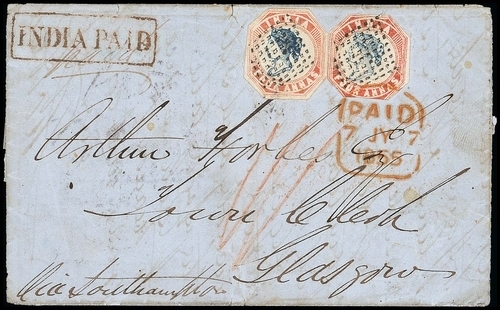 INDIA PAID
INDIA INDIA
FOUR ANNAS FOUR ANNAS
PAID
7 JY 7
1855
Arthur Forbes Esq
Town Clerk
Glasgow
Via Southampton